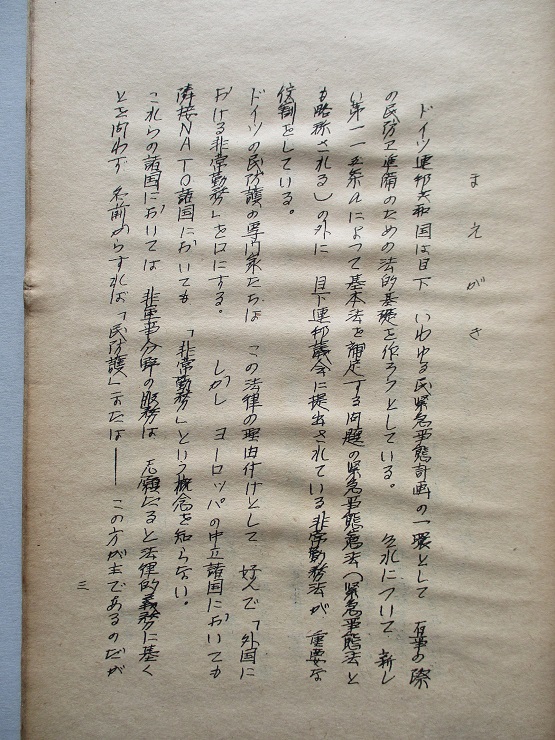 まえがき
ドイツ連邦共和国は目下 いわゆる民緊急事態計画の一環として 有事の際
の民防卫準備のための法的基礎を作ろうとしている。 それについて 新し
い第一一五条aによって基本法を補足する問題の緊急事態憲法(緊急事態法と
も略称される)の外に 目下連邦議会に提出されている非常勤務法が 重要な
役割をしている。
ドイツの民防護の専門家たちは この法律の理由付けとして 好んで「外国に
おける非常勤務」を口にする。 しかし ヨーロッパの中立諸国においても
隣接NATO諸国においても 「非常勤務」という概念を知らない。
これらの諸国においては 非軍事分野の服務は 志願たると法律的義務に基く
とを問わず 名前からすれば「民防護」または── この方が主であるのだが
三